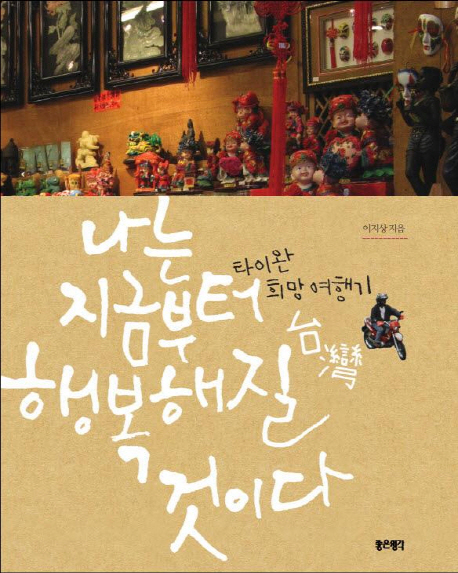 나는
지금부터
행복해질
것이다
타이완
희망 여행기
台灣
이지상 지음
좋은생각